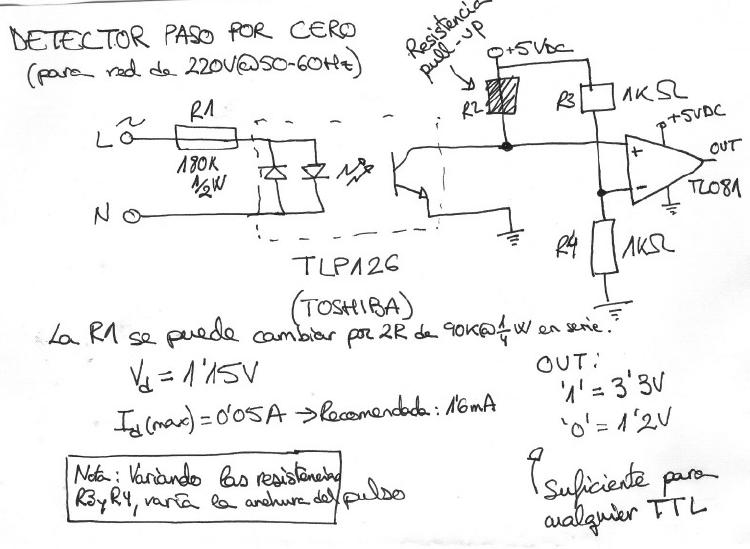 DETECTOR PASO POR CERO
(para red de 220V@50-60Hz)
Resistencia
pull-up
+5VDC
R1
R2
R3
1KΩ
+5VDC
L
~
180K
1/2W
+
OUT
-
TL081
N
R4
1KΩ
TLP126
(TOSHIBA)
La R1 se puede cambiar por 2R de 90K@1/4W en serie.
Vd = 1'15V
Id(max) = 0'05A → Recomendada: 1'6mA
OUT:
'1' = 3'3V
'0' = 1'2V
Nota: Variando las resistencias
R3 y R4, varía la anchura del pulso
Suficiente para
cualquier TTL